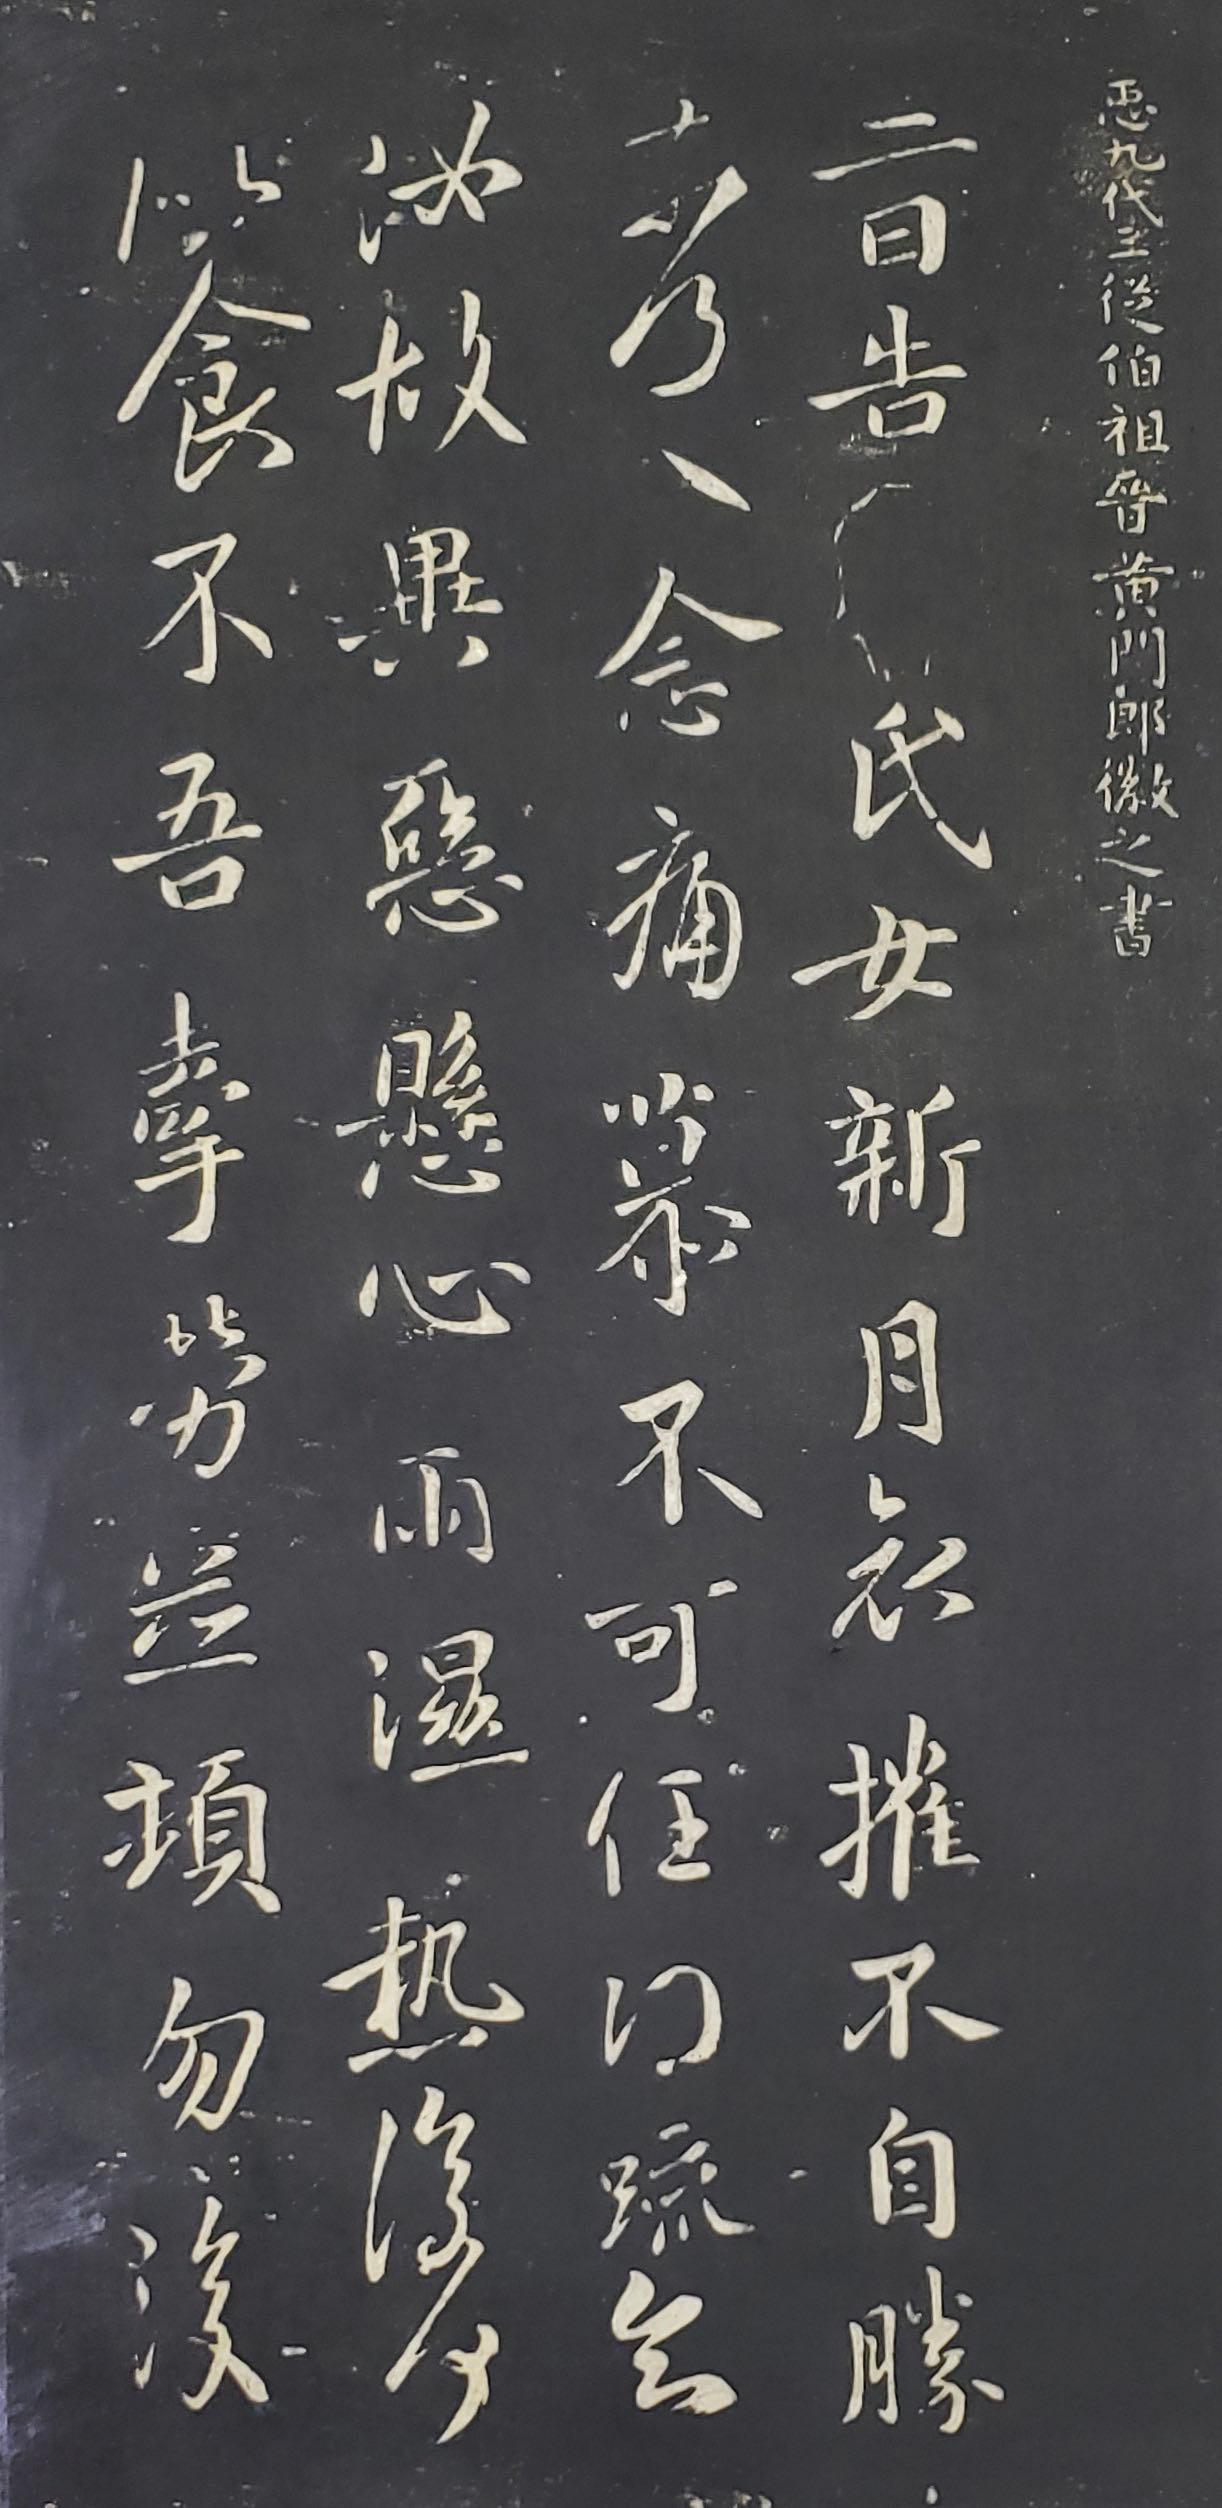 𢘑九代三從伯祖晉黃門郎徽之書
二日告氏女新月哀摧不自勝
奈何〻念痛慕不可任得疏知
汝故異惡懸心雨濕熱復何
似食不吾牽勞並頓勿復